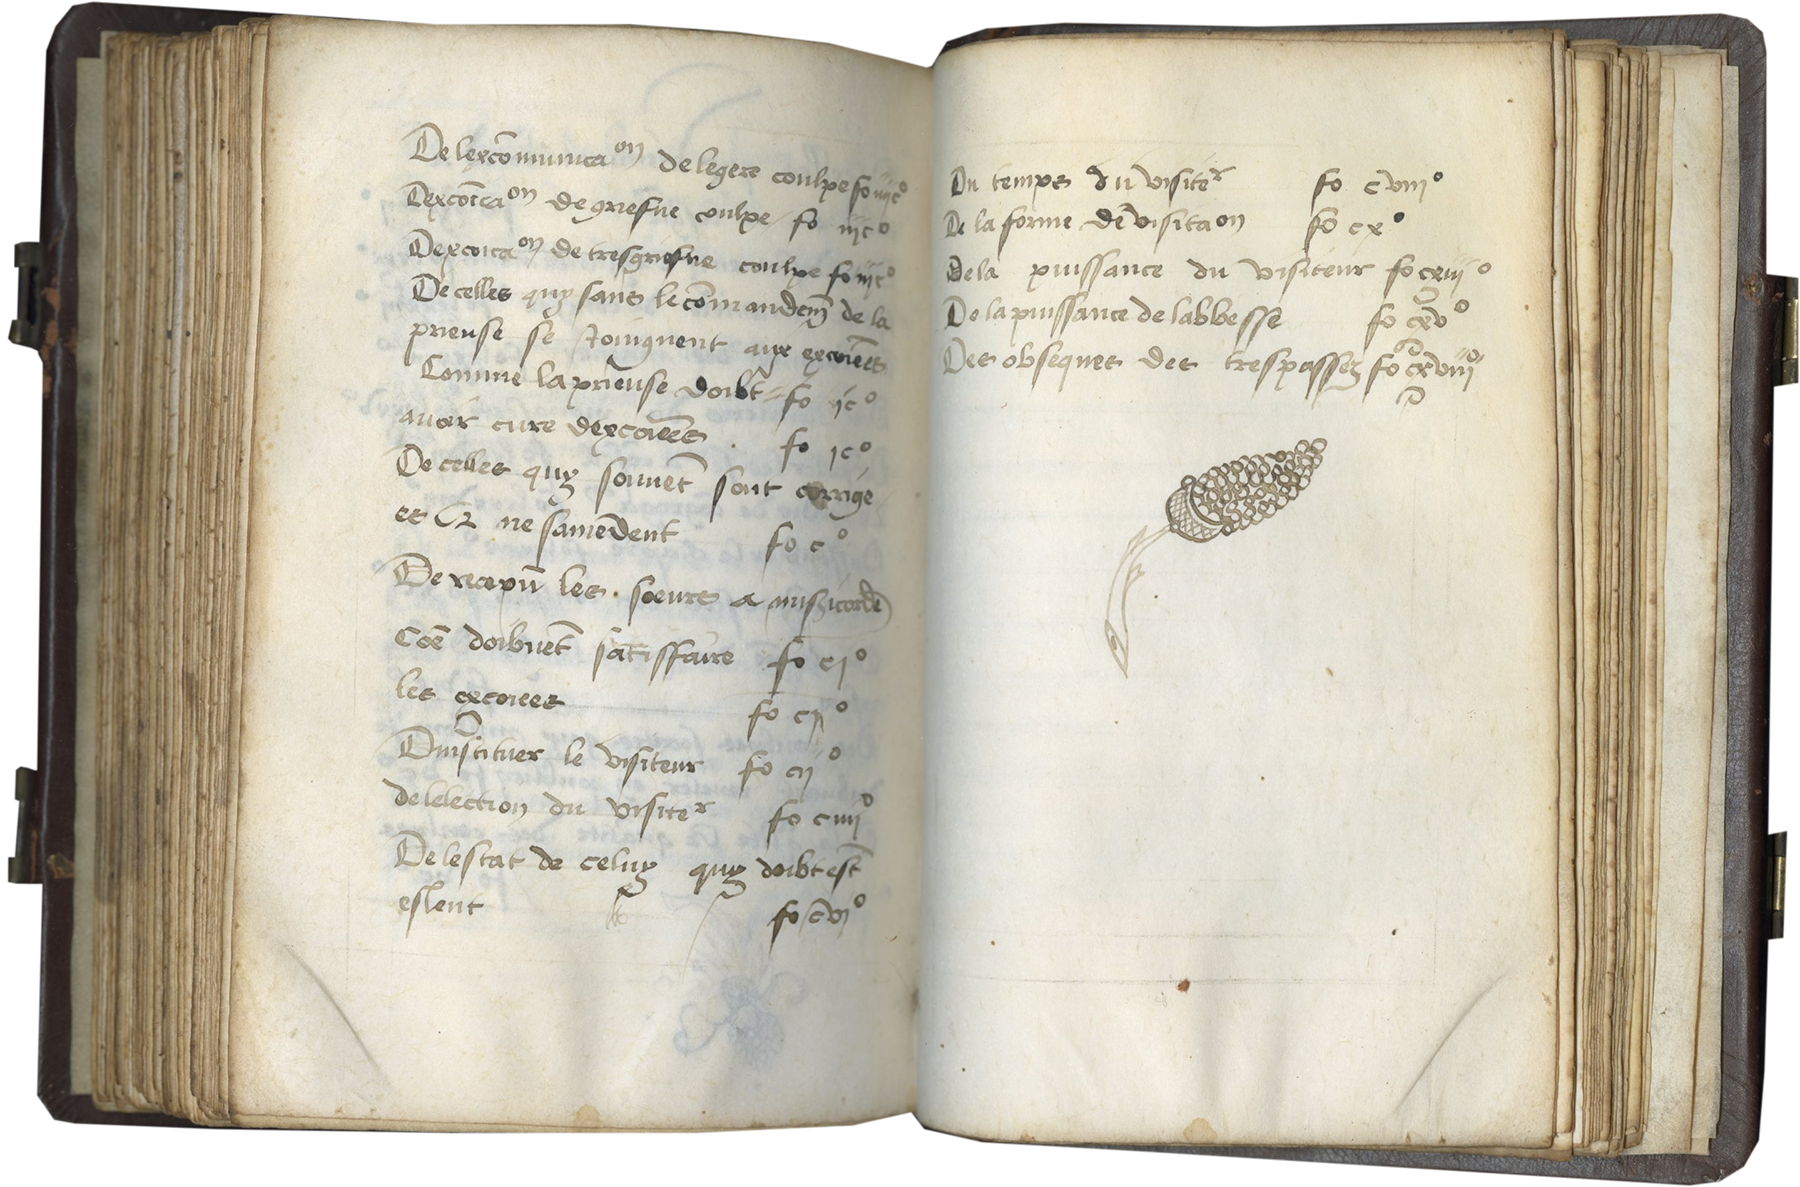 De lexcōmunica^on de legere coulpe fo iiijc°
Dexcōica^on de griefue coulpe fo iijc°
Dexcoica^on de tresgriefue coulpe fo iijc°
De celles quy sans le cōmandem̄ de la
prieuse se Joingnent aux excoiēes
Comme la prieuse doibt fo ijc°
auoir cure dexcoiēes . fo jc°
De celles quy souuēt sont corrigé
es et ne samēdent fo c°
De recepū les soeurs a misericorde
Coē doibuēt satisffaire fo cj°
les excoiees fo cij°
Dinstituer le visiteur fo cij°
de lelection du visite^r fo ciiij°
De lestat de celuy quy doibt est̄
esleut fo cvj°
Du temps du visite^r fo cviij°
De la forme dē visitaon fo cx°
De la puissance du visiteur fo cxiij°
De la puissance de labbesse fo cxv°
Des obseques des trespassez fo cxviij°